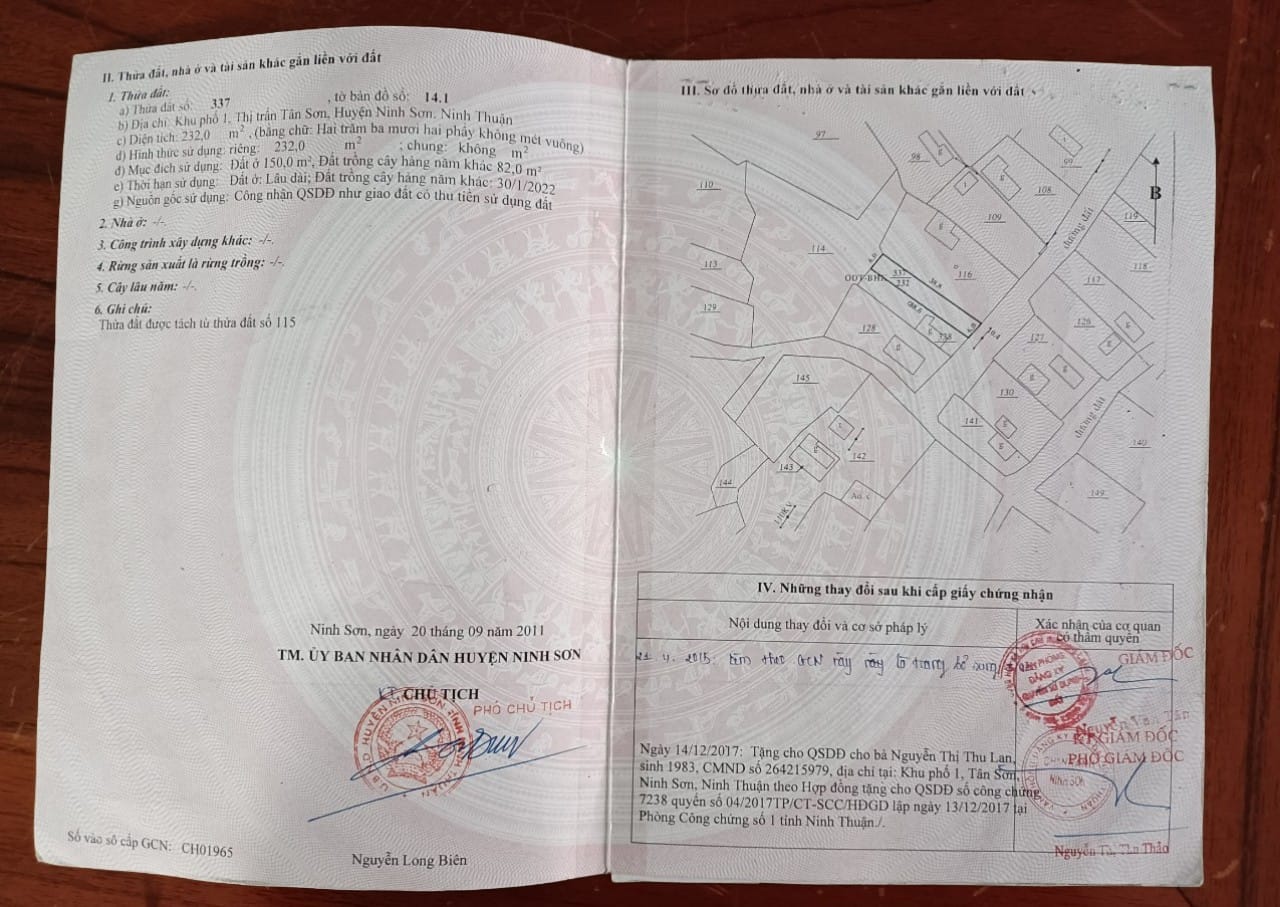 II. Thửa đất, nhà ở và tài sản khác gắn liền với đất
1. Thửa đất:
a) Thửa đất số: 337 , tờ bản đồ số: 14.1
b) Địa chỉ: Khu phố 1, Thị trấn Tân Sơn, Huyện Ninh Sơn, Ninh Thuận
c) Diện tích: 232,0 m², (bằng chữ: Hai trăm ba mươi hai phẩy không mét vuông)
d) Hình thức sử dụng: riêng: 232,0 m² ; chung: không m²
đ) Mục đích sử dụng: Đất ở 150,0 m², Đất trồng cây hàng năm khác 82,0 m²
e) Thời hạn sử dụng: Đất ở: Lâu dài; Đất trồng cây hàng năm khác: 30/1/2022
g) Nguồn gốc sử dụng: Công nhận QSDĐ như giao đất có thu tiền sử dụng đất
2. Nhà ở: -/-.
3. Công trình xây dựng khác: -/-.
4. Rừng sản xuất là rừng trồng: -/-.
5. Cây lâu năm: -/-.
6. Ghi chú:
Thửa đất được tách từ thửa đất số 115
Ninh Sơn, ngày 20 tháng 09 năm 2011
TM. ỦY BAN NHÂN DÂN HUYỆN NINH SƠN
KT. CHỦ TỊCH
PHÓ CHỦ TỊCH
Nguyễn Long Biên
Số vào sổ cấp GCN: CH01965
III. Sơ đồ thửa đất, nhà ở và tài sản khác gắn liền với đất
97
98
99
110
108
B
109
119
114
đường đất
118
113
116
117
337
232
129
128
338
126
127
10.4
145
130
141
đường đất
142
140
143
144
149
Ao. c
IV. Những thay đổi sau khi cấp giấy chứng nhận
Nội dung thay đổi và cơ sở pháp lý
Xác nhận của cơ quan
có thẩm quyền
21.4.2015: kèm theo GCN này tờ trang bổ sung
GIÁM ĐỐC
VĂN PHÒNG
ĐĂNG KÝ
QUYỀN SỬ DỤNG
ĐẤT
Nguyễn Văn Tân
KT. GIÁM ĐỐC
PHÓ GIÁM ĐỐC
NINH SƠN
Ngày 14/12/2017: Tặng cho QSDĐ cho bà Nguyễn Thị Thu Lan,
sinh 1983, CMND số 264215979, địa chỉ tại: Khu phố 1, Tân Sơn,
Ninh Sơn, Ninh Thuận theo Hợp đồng tặng cho QSDĐ số công chứng
7238 quyển số 04/2017TP/CT-SCC/HĐGD lập ngày 13/12/2017 tại
Phòng Công chứng số 1 tỉnh Ninh Thuận./.